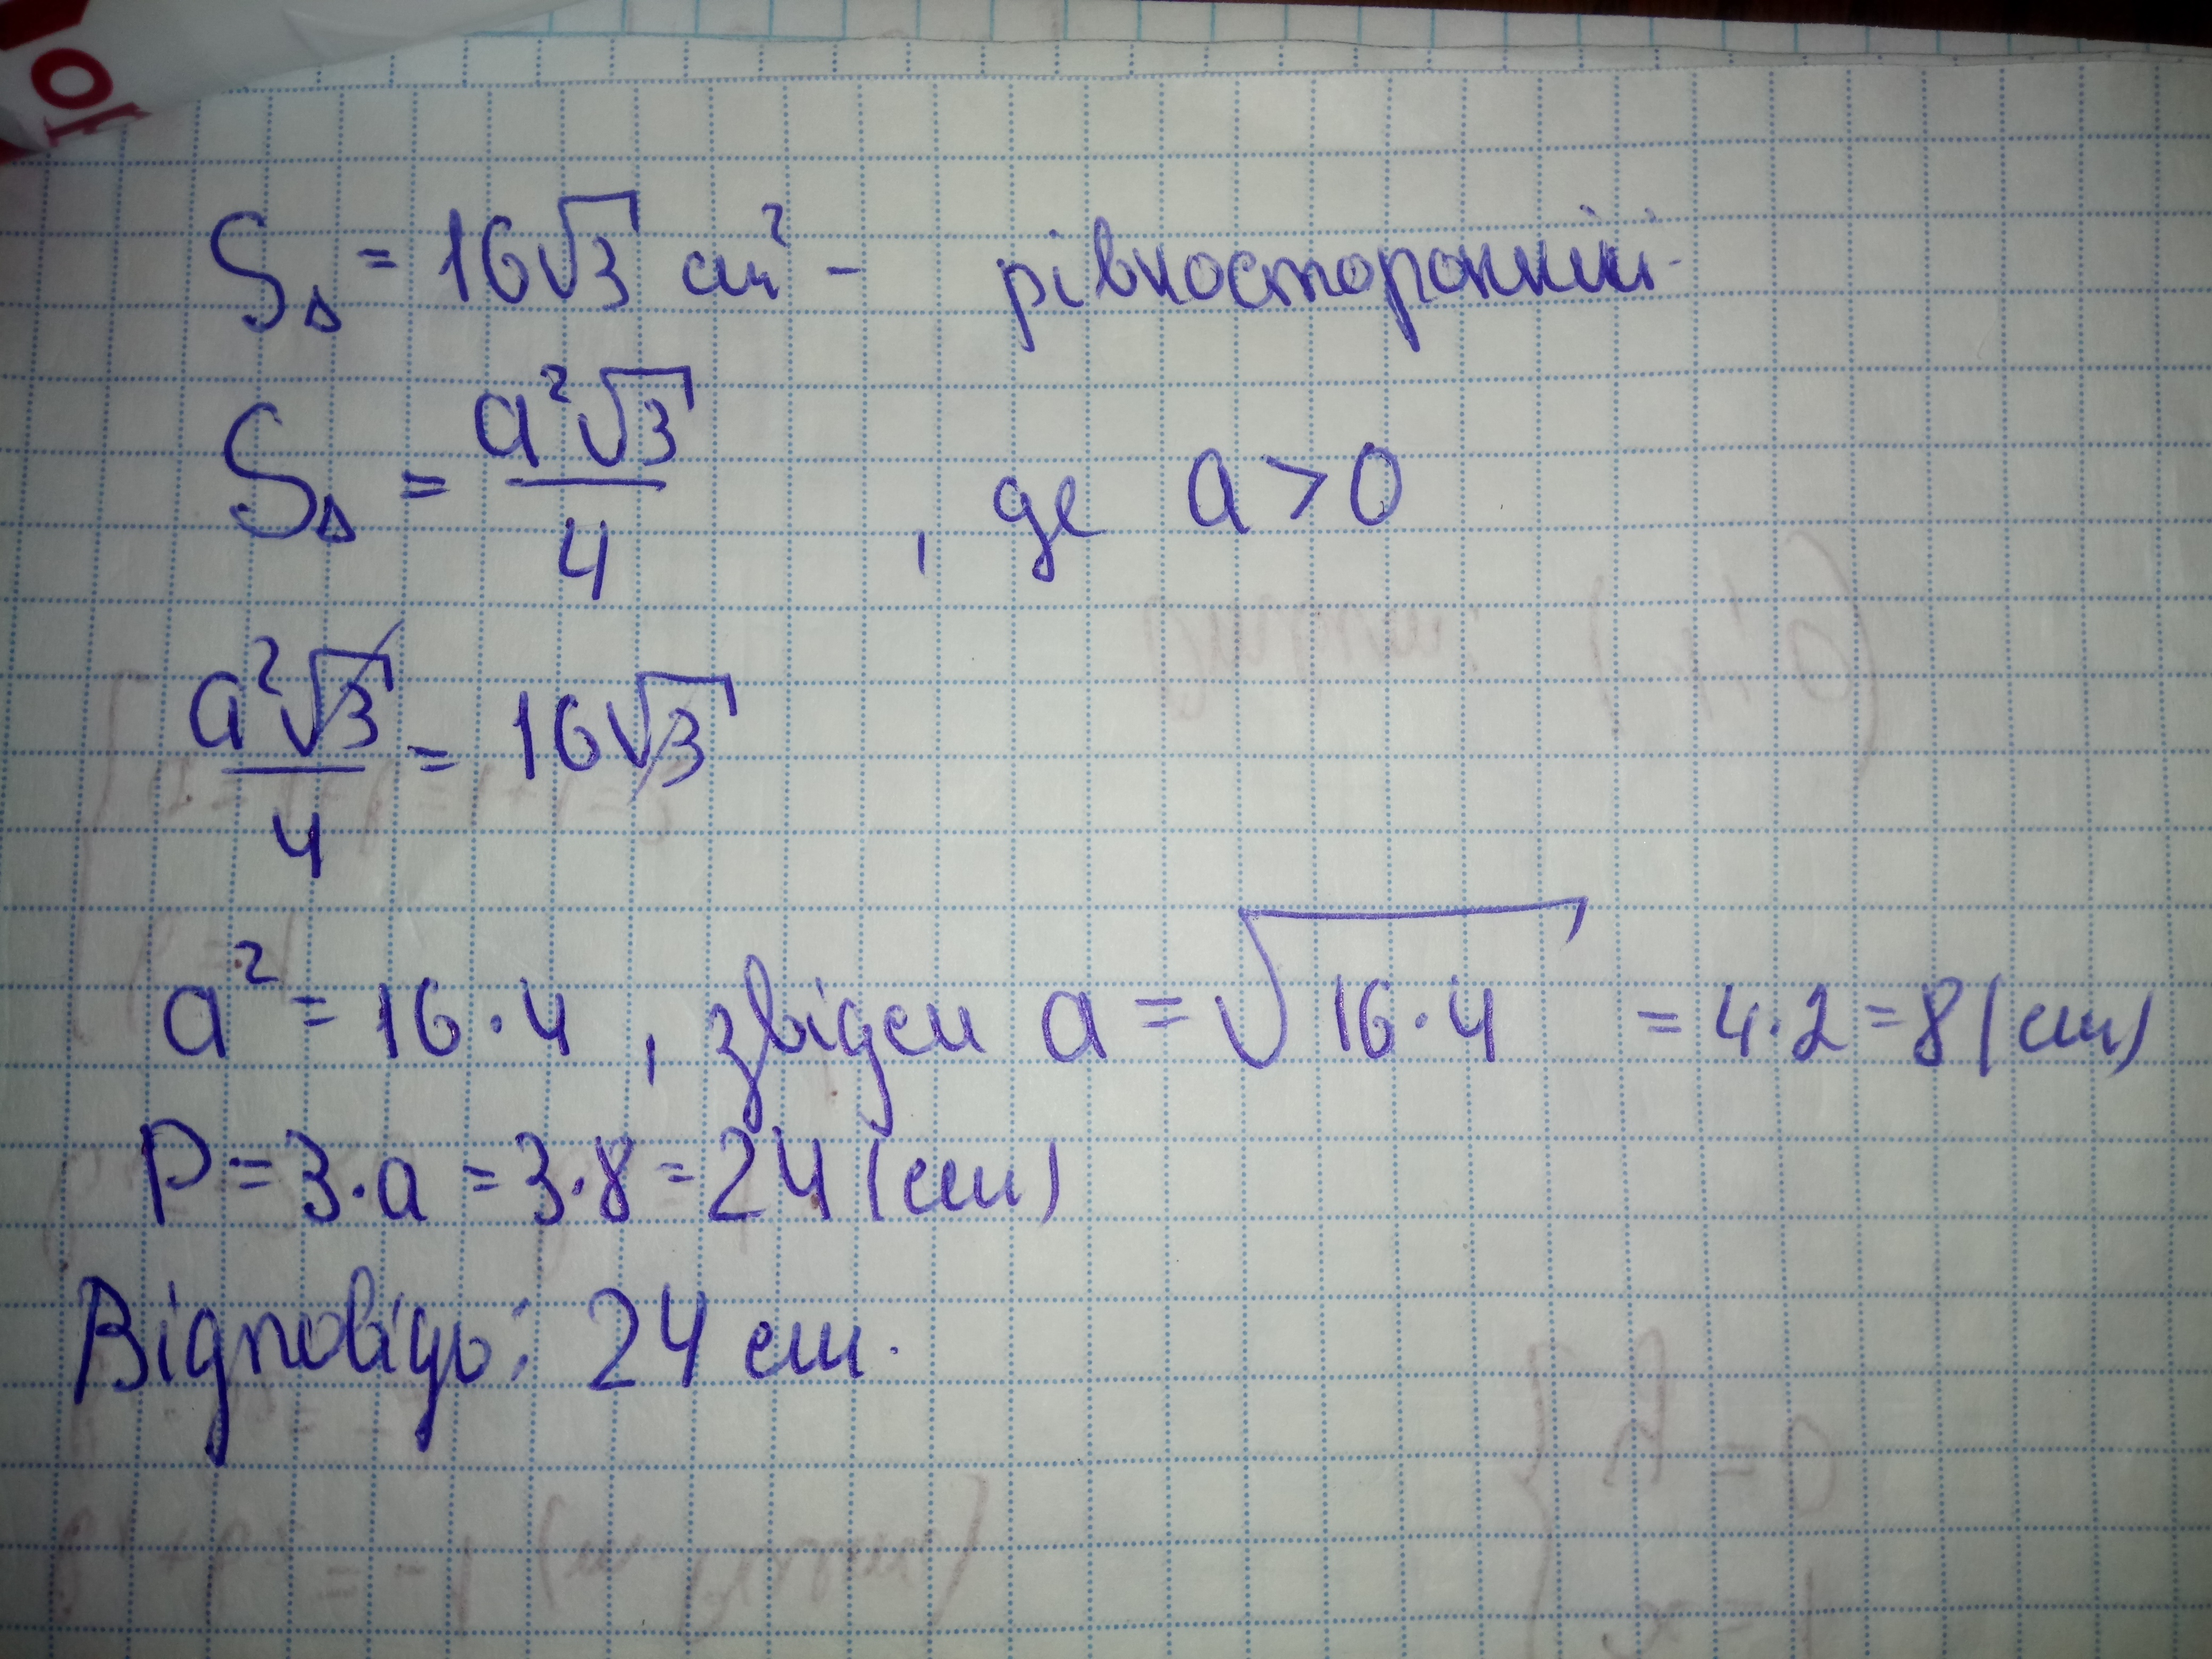 S△ = 16√3 см² - рівносторонній.
S△ = a²√3 / 4 , де a > 0
a²√3 / 4 = 16√3
a² = 16·4 , звідси a = √16·4 = 4·2 = 8 (см)
P = 3·a = 3·8 = 24 (см)
Відповідь: 24 см.